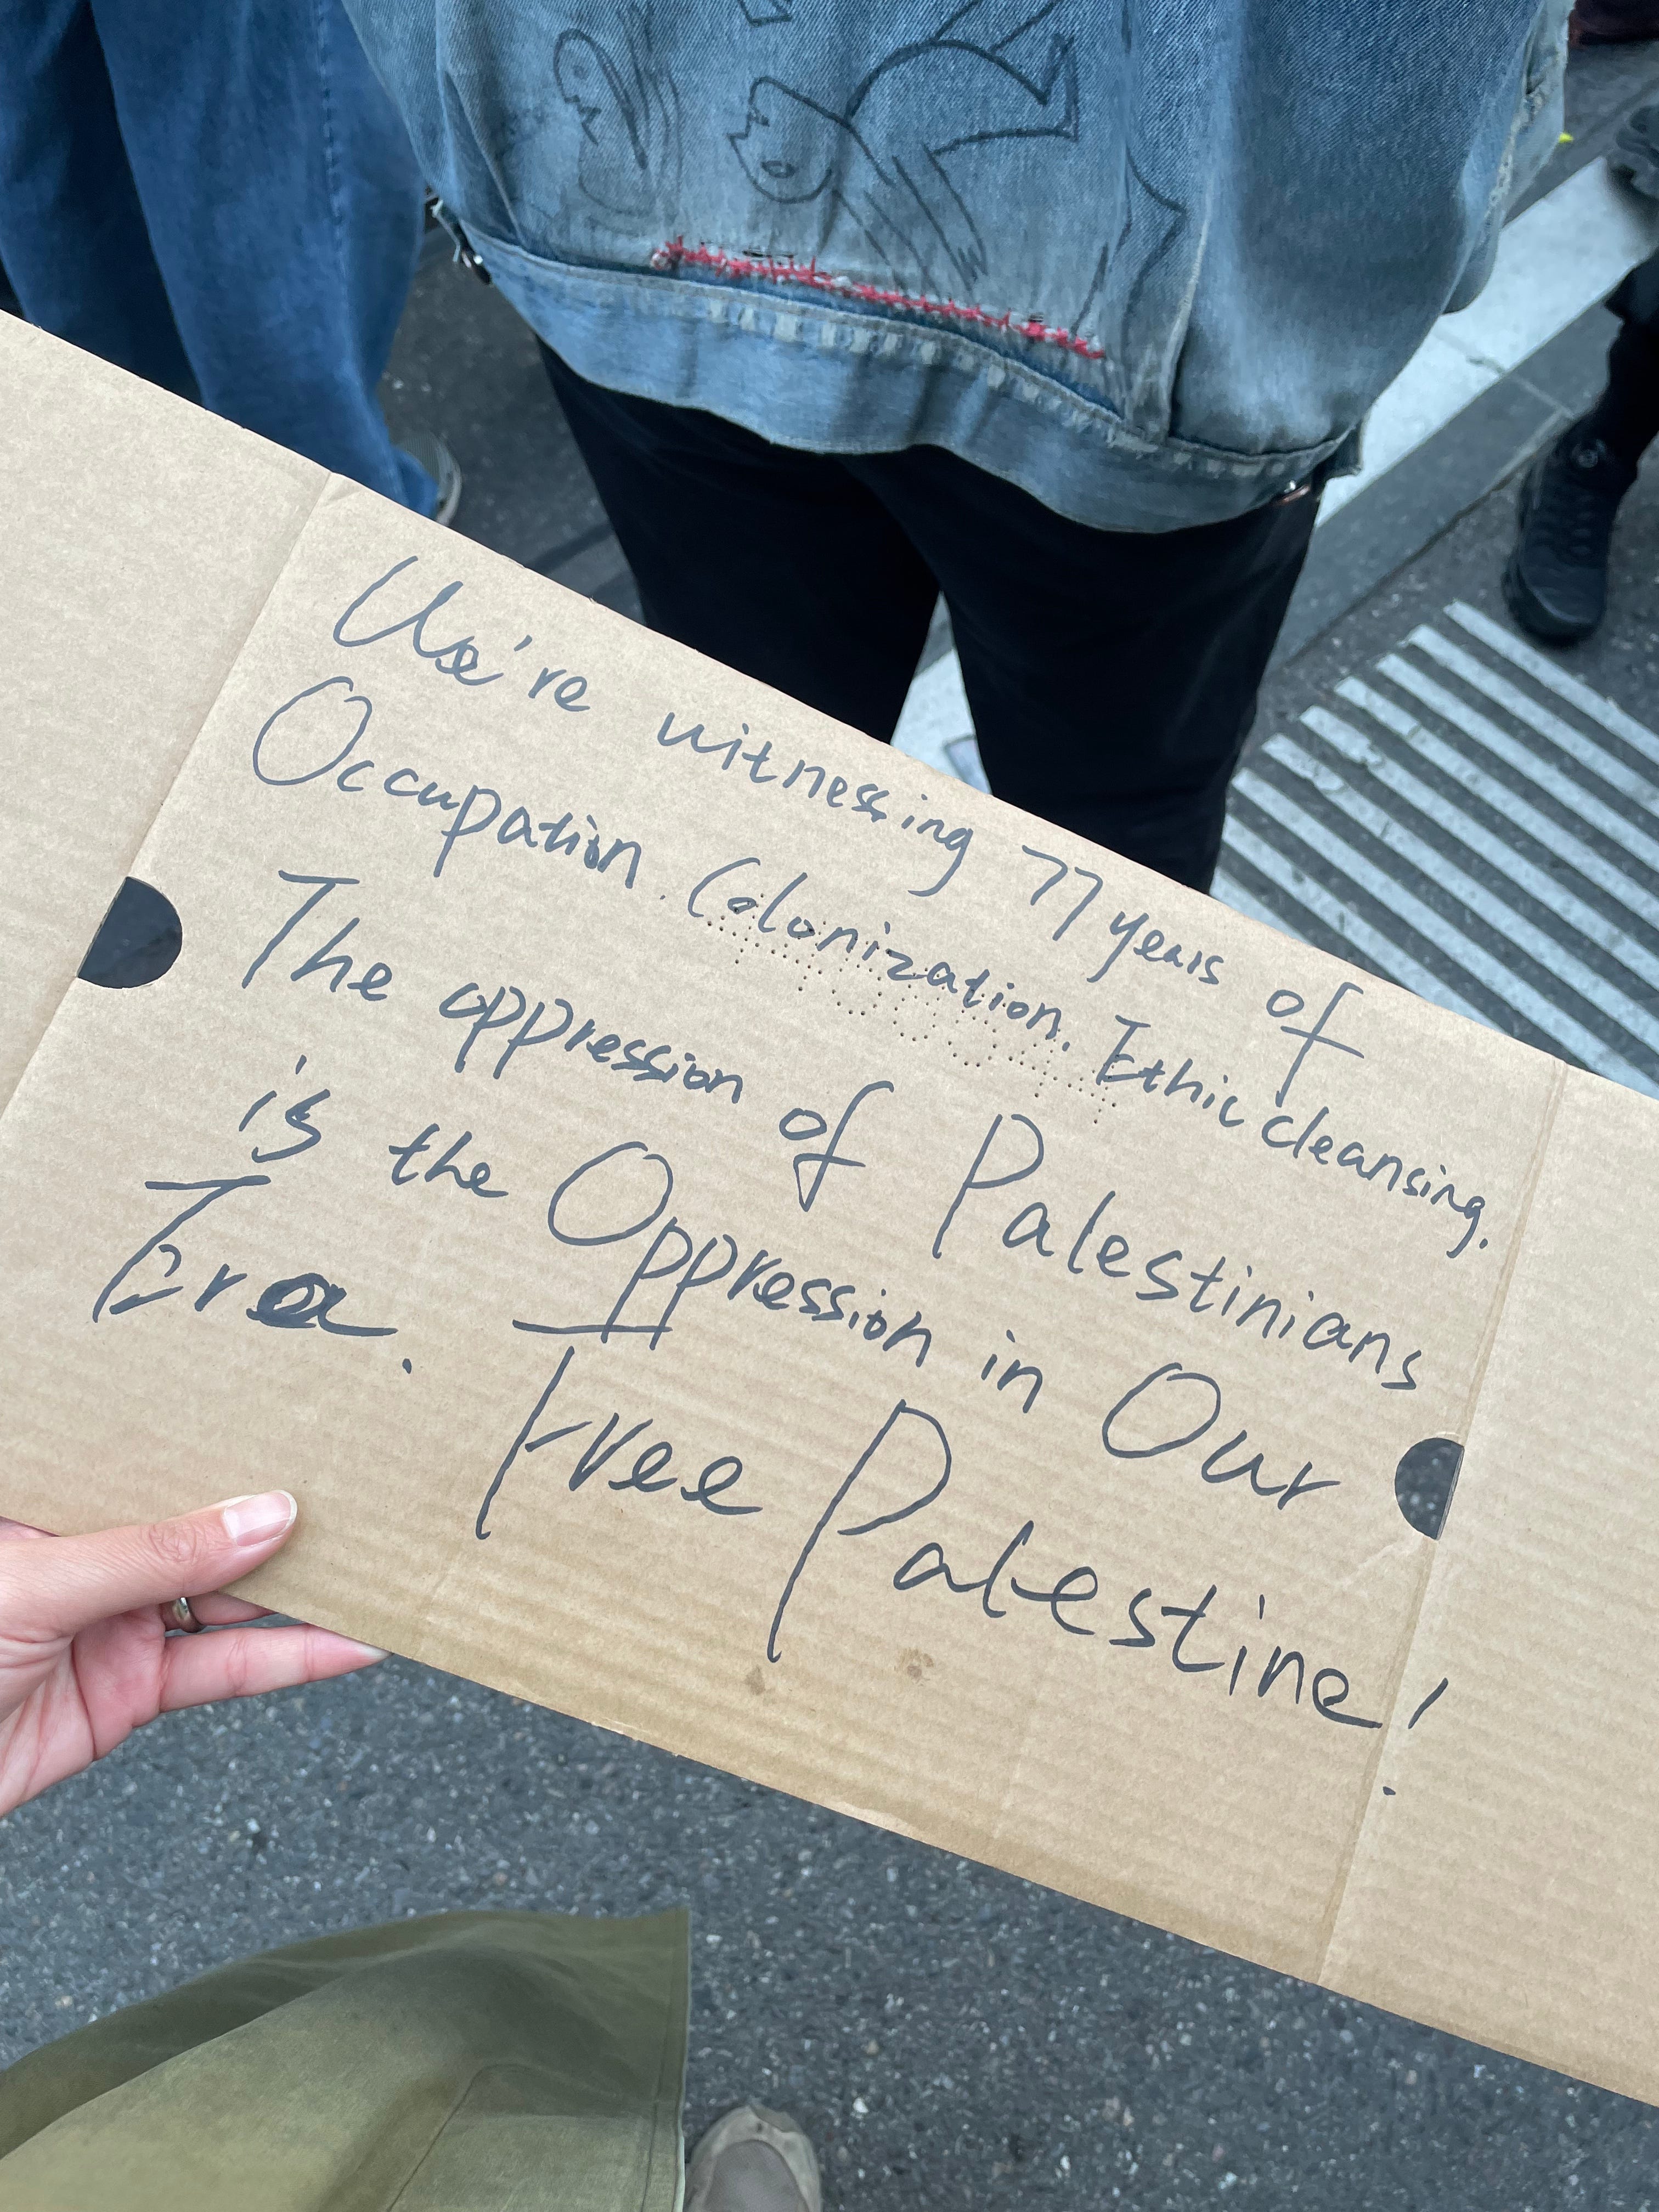 We're witnessing 77 years of
Occupation. Colonization. Ethic cleansing.
The oppression of Palestinians
is the Oppression in Our
Era.
Free Palestine!